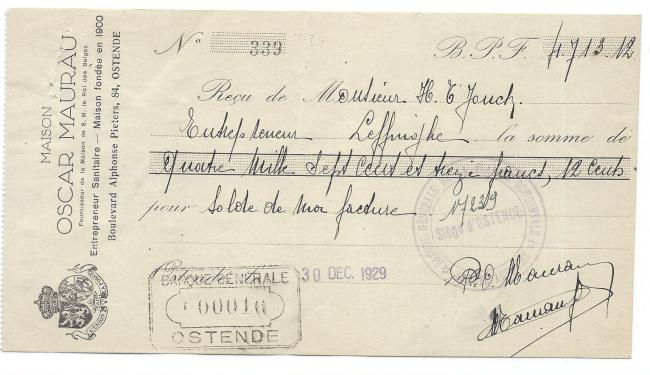 MAISON
OSCAR MAURAU
Fournisseur de la Maison de S. M. le Roi des Belges
Entrepreneur Sanitaire — Maison fondée en 1900
Boulevard Alphonse Pieters, 84, OSTENDE
No 339 B. P. F. 4713.12
Reçu de Monsieur H. T'Jonck
Entrepreneur Leffinghe la somme de
Quatre Mille Sept Cent et treize francs, 12 Cents
pour Solde de Ma facture No 239
Siège d'OSTENDE
30 DEC. 1929
BANQUE GÉNÉRALE
OSTENDE
O. Maurau
Maurau